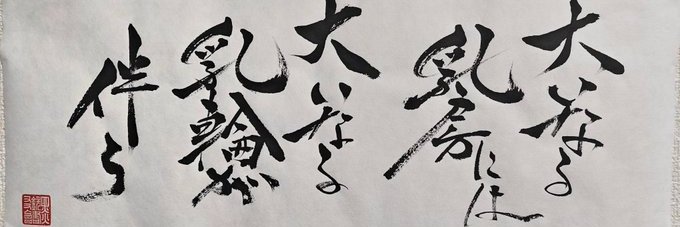 大いなる
乳房には
大いなる
乳輪が
伴う